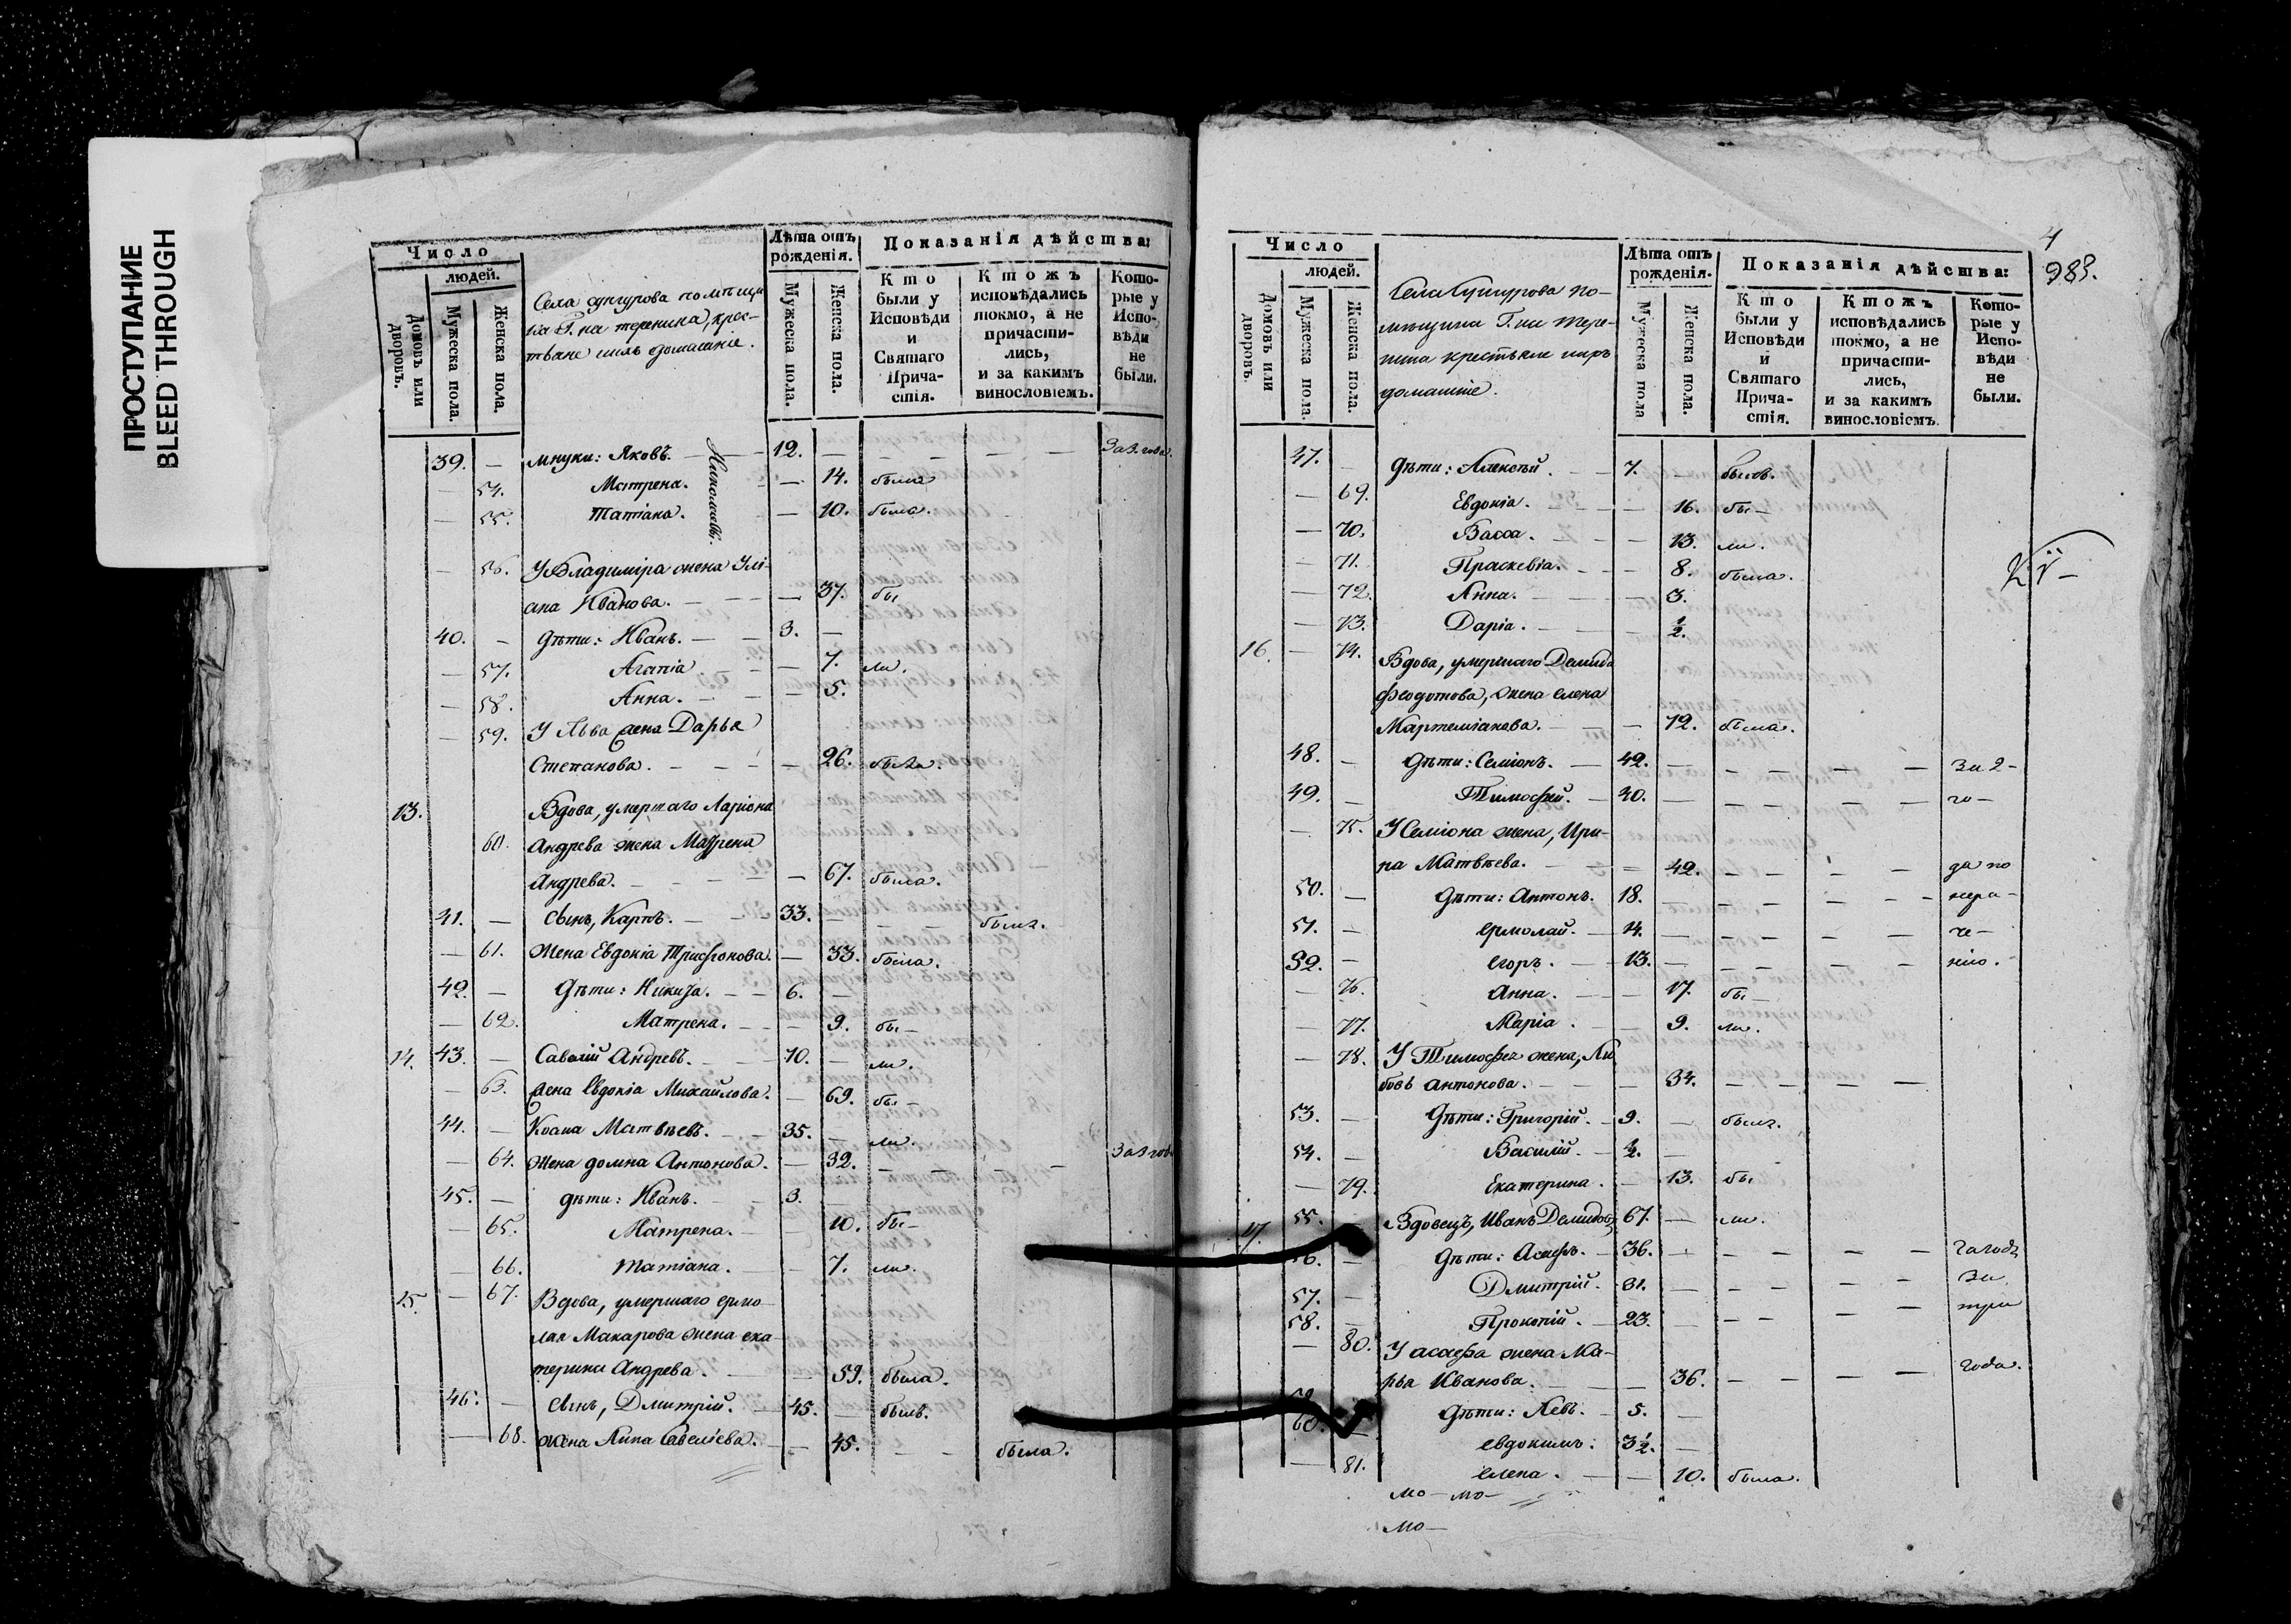 ПРОСТУПАНИЕ
BLEED THROUGH
Число
людей.
Домовъ или дворовъ.
Мужеска пола.
Женска пола.
Села
крес-
домашніе.
Лѣта отъ рожденія.
Мужеска пола.
Женска пола.
Показанія дѣйства:
Кто были у Исповѣди и Святаго Прича-стія.
Ктожъ исповѣдались токмо, а не причасти-лись, и за какимъ винословіемъ.
Кото-рые у Испо-вѣди не были.
39. — внуки: Яковъ. 12. —
Николаевы.
— 54. Матрена. — 14. была
— 55. Татіана. — 10. была.
— 56. У Владиміра жена Улі-
ана Иванова. — 37. бы
40. — Дѣти: Иванъ. 3. —
— 57. Агапіа — 7. ли.
— 58. Анна. — 5.
— 59. У Льва жена Дарья
Степанова. — 26. была.
13. Вдова, умершаго Ларіона
60. Андрева жена Матрена
Андрева. — 67. была.
41. — Сынъ, Карпъ. 33. — былъ.
— 61. Жена Евдокіа Трифонова. — 33. была.
42. — Дѣти: Никита. 6. —
— 62. Матрена. — 9. бы—
14. 43. — Савелій Андревъ. 70. — ли.
— 63. Жена Евдокіа Михайлова. — 69. бы—
44. — Матвѣевъ. 35. — ли.
— 64. Жена домна Антонова. — 32. —
45. — дѣти: Иванъ. 3. —
— 65. Матрена. — 10. бы—
— 66. Татіана. — 7. ли.
15. — 67. Вдова, умершаго ермо-
лая Макарова жена ека-
терина Андрева. — 59. была.
46. — Сынъ, Дмитрій. 45. — былъ.
— 68. жена Анна Савелiева. — 45. — была.
4
983.
Число
людей.
Домовъ или дворовъ.
Мужеска пола.
Женска пола.
Села Сунгурова по-
мѣщика Г.на Тере-
нина крестьяне
домашніе.
Лѣта отъ рожденія.
Мужеска пола
Женска пола.
Показанія дѣйства:
Кто были у Исповѣди и Святаго Прича-стія.
Ктожъ исповѣдались токмо, а не причасти-лись, и за какимъ винословіемъ.
Кото-рые у Испо-вѣди не были.
47. — Дѣти: Алексѣй. 7. — былъ.
— 69. Евдокіа. — 16. бы—
— 70. Васса. — 13. ли.
— 71. Праскевіа. — 8. была.
— 72. Анна. — 3.
— 73. Даріа. — ½.
16. — 74. Вдова, умершаго Демида
Феодотова, жена елена
Мартеміанова. — 72. была.
48. — Дѣти: Семіонъ. 42. — за 2—
49. — Тимофей. 40. — го—
— 75. У Семіона жена, Ири-
на Матвѣева. — 42. — да по
50. — Дѣти: Антонъ. 18. — нера—
51. — ермолай. 14. — че—
52. — егоръ. 13. — нію.
— 76. Анна. — 17. бы—
— 77. Маріа. — 9. ли.
— 78. У Тимофея жена, Лю
бовь Антонова. — 34. —
53. — Дѣти: Григорій. 9. — былъ.
54. — Василій. ½. —
— 79. Екатерина. — 13. бы
17. 55. — Вдовецъ, Иванъ Демидовъ, 67. — ли.
56. — Дѣти: Асафъ. 36. —
57. — Дмитрій. 31. — за
58. — Прокопій. 23. — три
— 80. У асафа жена Ма-
рья Иванова. — 36. — года.
59. Дѣти: Левъ. 5. —
60. — евдокимъ. 3½. —
— 81. елена. — 10. была.
мо— мо—
мо—